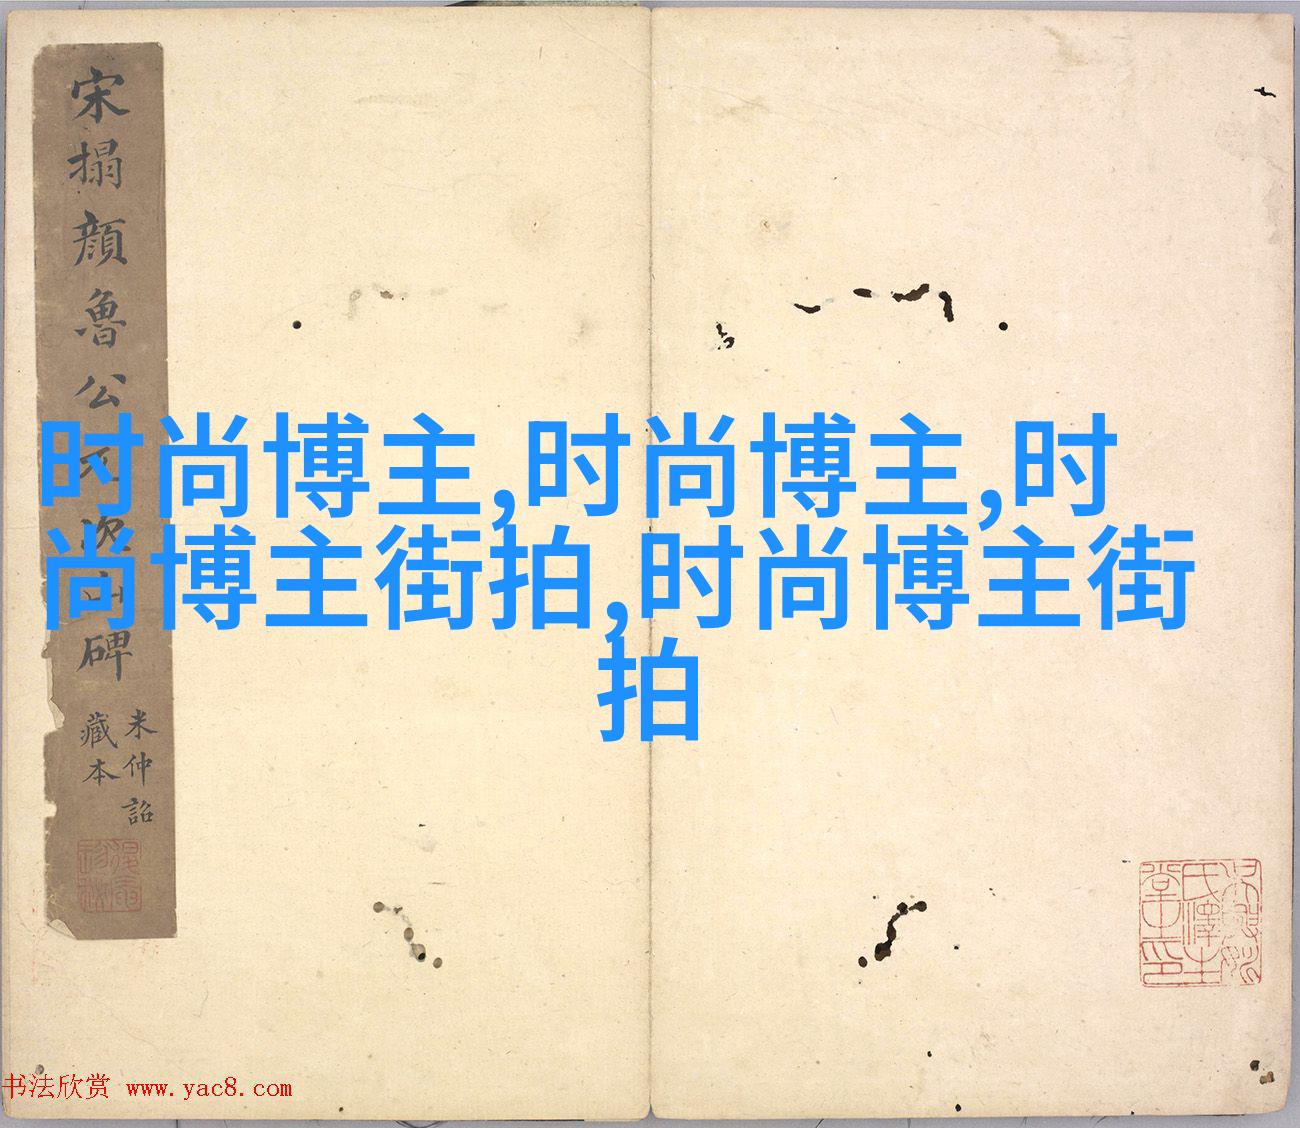 宋搨顏魯公元次山碑
米仲詔
藏本
时尚博主,时尚博主,时
尚博主街拍,时尚博主街
拍
书法欣赏 www.yac8.com